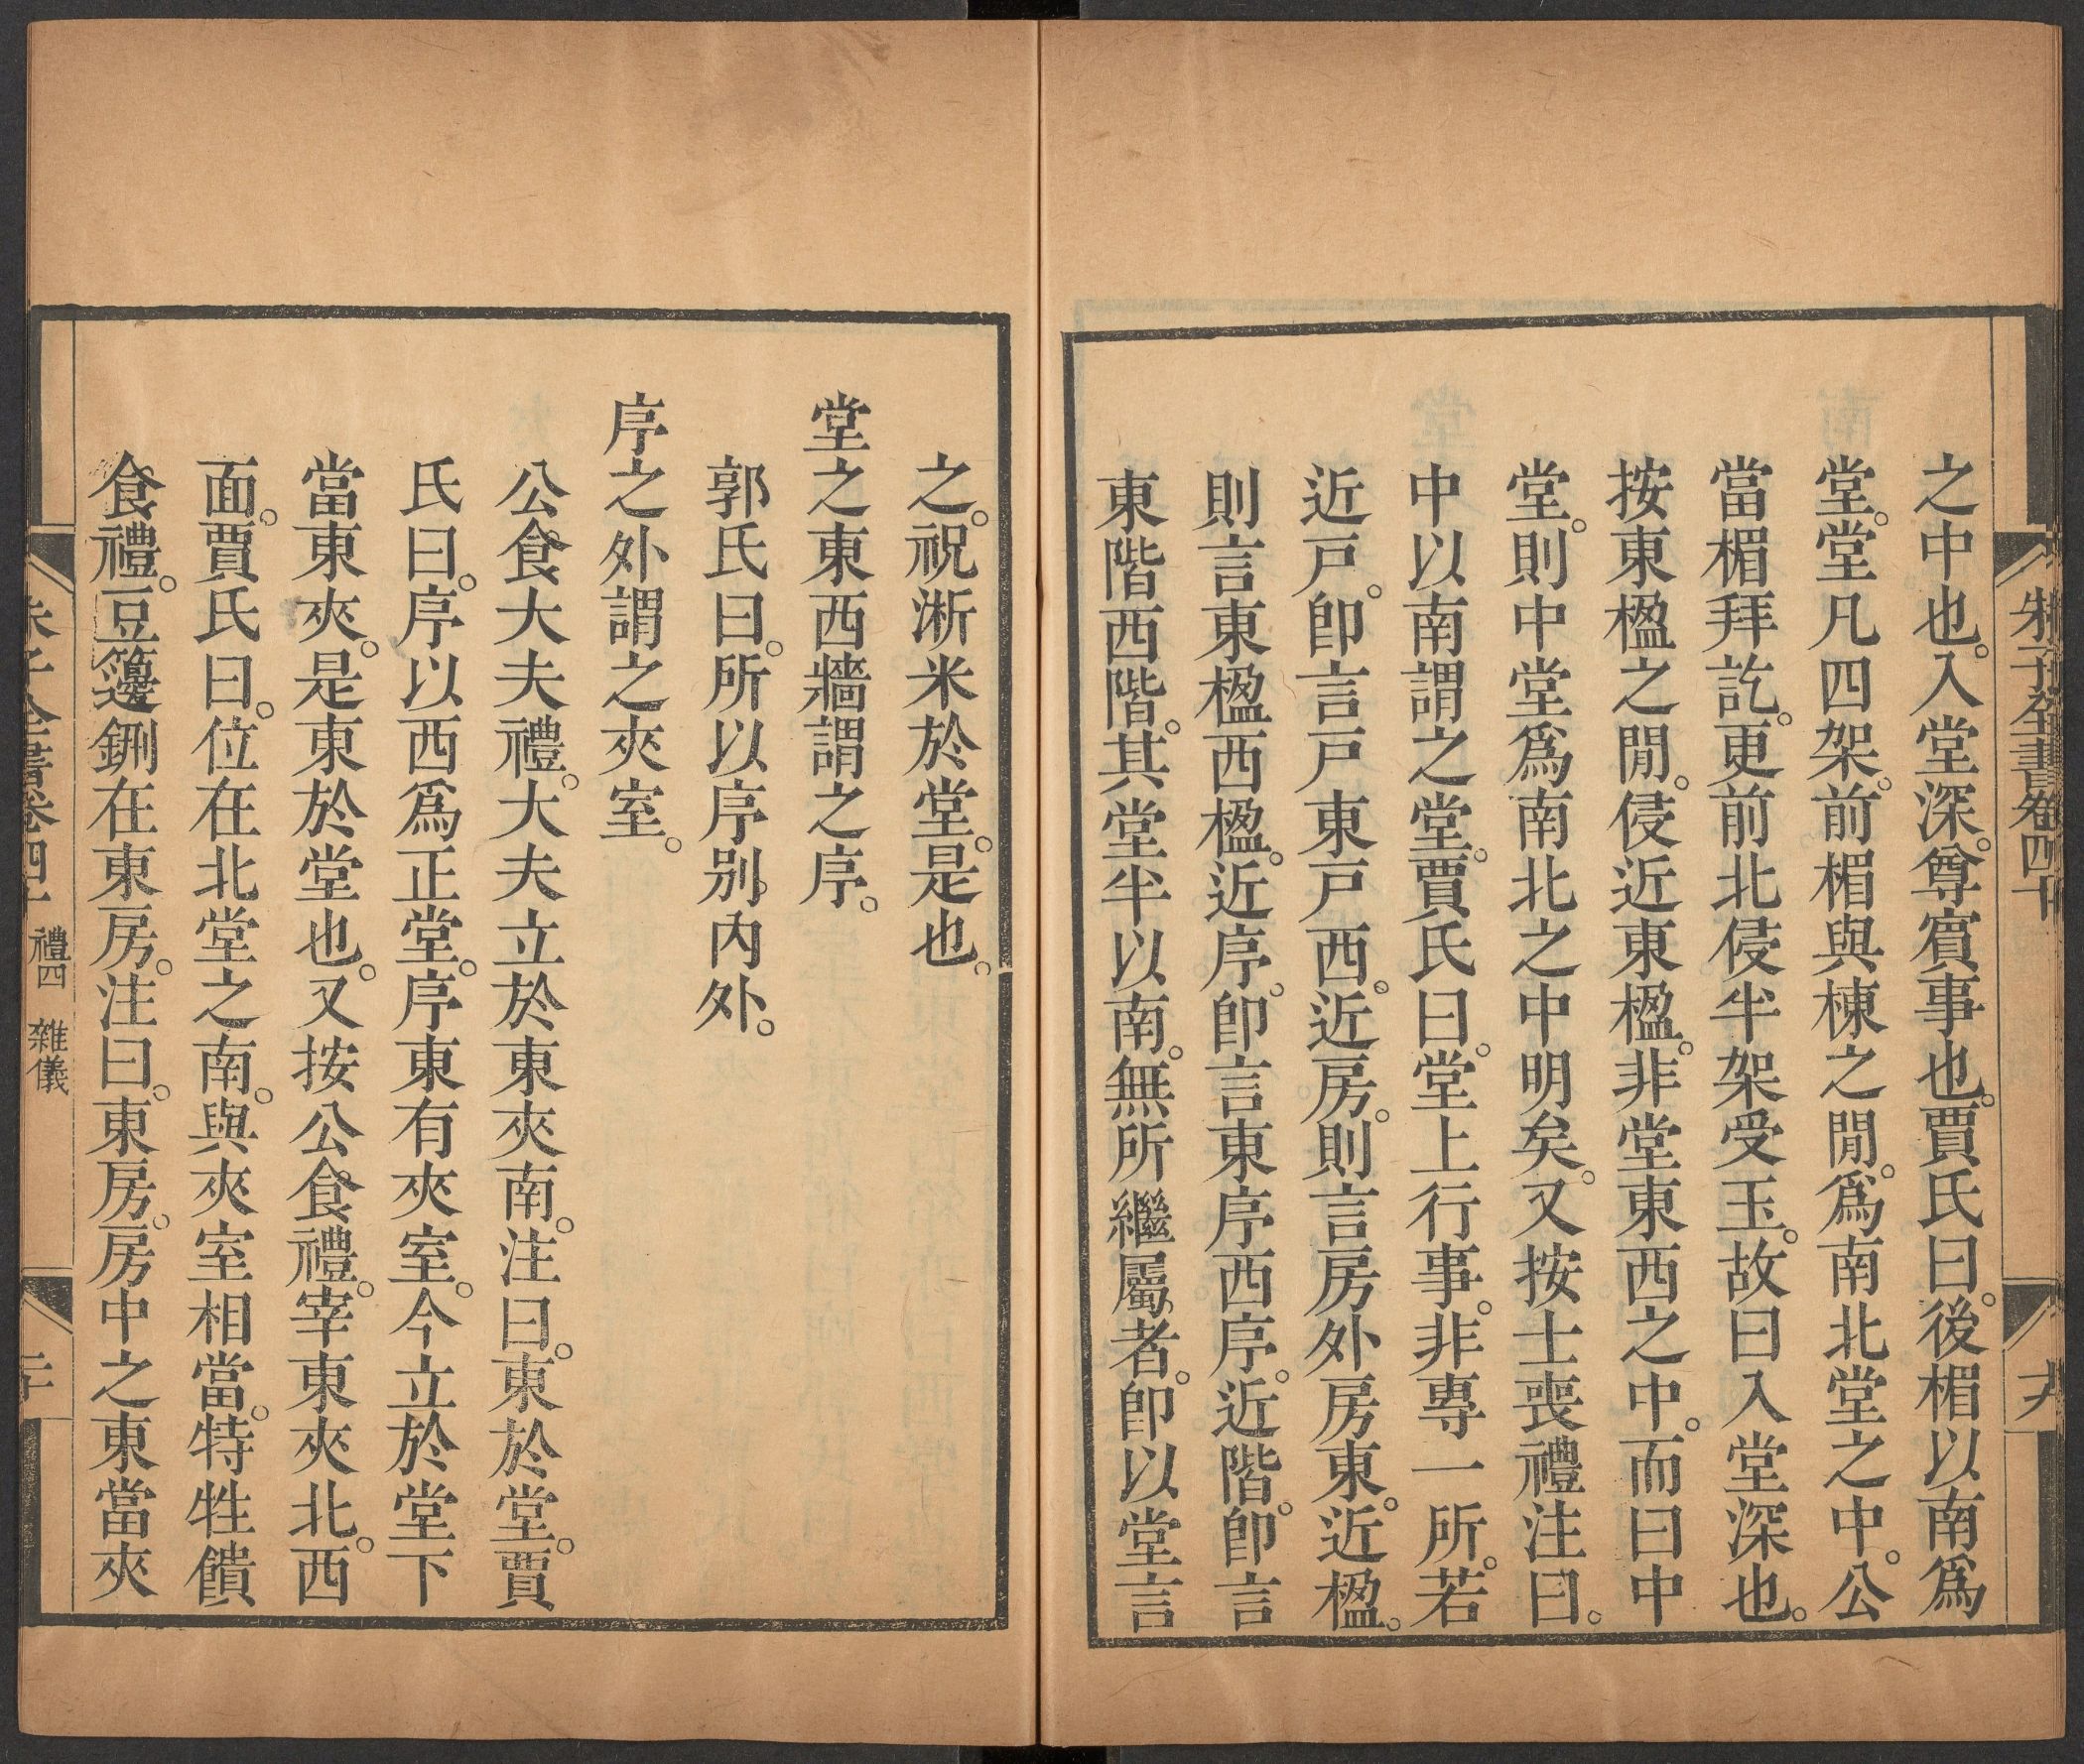 朱子全書卷四十
之中也。入堂深。尊賓事也。賈氏曰。後楣以南爲
堂。堂凡四架。前楣與棟之閒。爲南北堂之中。公
當楣拜訖。更前北侵半架受玉。故曰入堂深也。
按東楹之閒。侵近東楹。非堂東西之中。而曰中
堂。則中堂爲南北之中明矣。又按士喪禮注曰。
中以南謂之堂。賈氏曰。堂上行事。非專一所。若
近戶。卽言戶東戶西。近房。則言房外房東。近楹。
則言東楹西楹。近序。卽言東序西序。近階。卽言
東階西階。其堂半以南。無所繼屬者。卽以堂言
之。祝淅米於堂。是也。
堂之東西牆謂之序。
郭氏曰。所以序別內外。
序之外謂之夾室。
公食大夫禮。大夫立於東夾南。注曰。東於堂。賈
氏曰。序以西爲正堂。序東有夾室。今立於堂下
當東夾。是東於堂也。又按公食禮。宰東夾北。西
面。賈氏曰。位在北堂之南。與夾室相當。特牲饋
食禮。豆籩鉶在東房。注曰。東房。房中之東當夾
朱子全書卷四十 禮四 雜儀